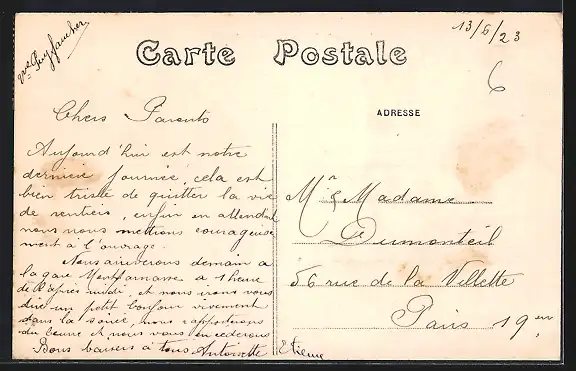 que Puyfaucher
13/6/23
Carte Postale
6
ADRESSE
Chers Parents
Aujourd'hui est notre
dernière journée, cela est
bien triste de quitter la vie
de rentiers, enfin en attendant
nous nous mettrons courageuse
ment à l'ouvrage.
Nous arriverons demain à
la gare Montparnasse à 1 heure
de l'après midi, et nous irons vous
dire un petit bonjour vivement
dans la soirée, nous rapportons
du beurre et nous vous en cèderons
Bons baisers à tous Antoinette Etienne
Mr & Madame
Dumonteil
56 rue de la Villette
Paris 19em